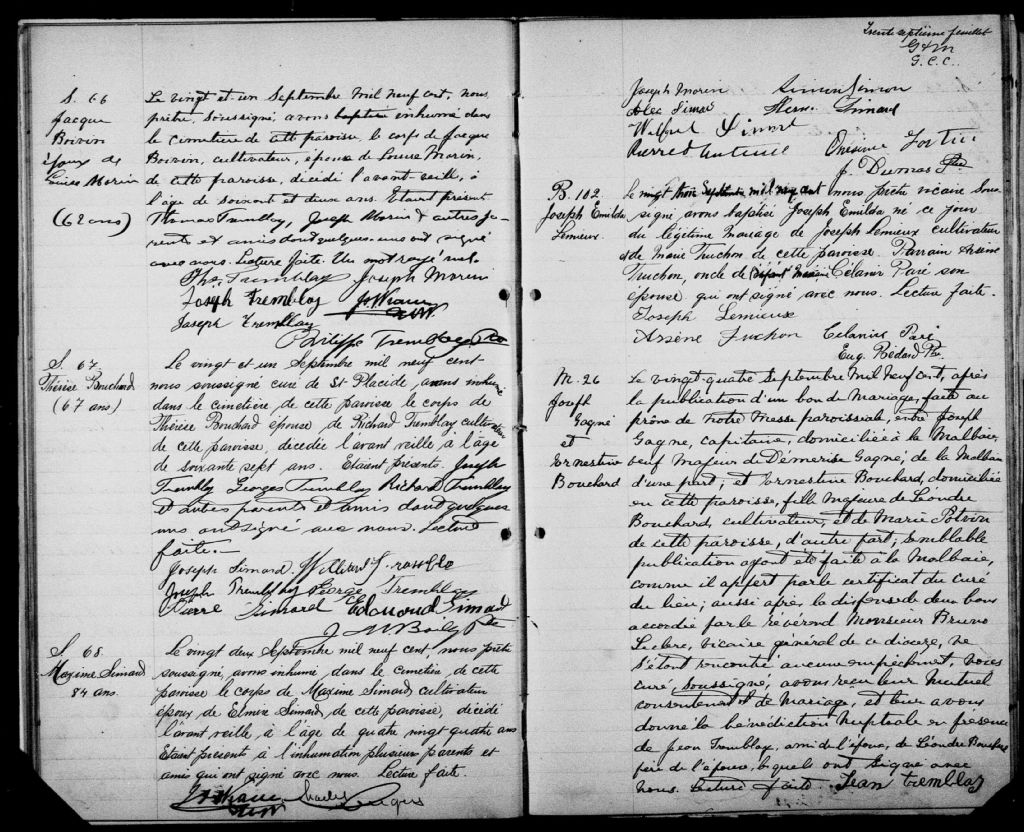 S. 66
Jacque
Boivin
époux de
Louise Morin
(62 ans)
Le vingt et un Septembre mil neuf cent, nous
prêtre, soussigné, avons baptisé inhumé dans
le cimetière de cette paroisse, le corps de Jacque
Boivin, cultivateur, époux de Louise Morin,
de cette paroisse, décidé l'avant veille, à
l'âge de soixant et deux ans. Etaient présent
Thomas Tremblay, Joseph Morin & autres pa-
rents et amis dont quelques-uns ont signé
avec nous. Lecture faite. Un mot rayé nul.
Ths. Tremblay Joseph Morin
Joseph Tremblay
Joseph Tremblay
Philippe Tremblay
S. 67.
Thérèse Bouchard
(67 ans)
Le vingt et un Septembre mil neuf cent
nous soussigné curé de St Placide, avons inhumé
dans le cimetière de cette paroisse le corps de
Thérèse Bouchard épouse de Richard Tremblay cultivateur
de cette paroisse, decedée l'avant veille à l'âge
de soixante sept ans. Etaient présents. Joseph
Trembly Georges Tremblay Richard Tremblay
et autres parents et amis dont quelques
uns ont signé avec nous. Lecture
faite.-
Joseph Simard
Joseph Tremblay George Tremblay
Pierre Simard Edouard Simard
S. 68.
Maxime Simard
84 ans.
Le vingt deux Septembre mil neuf cent, nous prêtre
soussigné, avons inhumé dans le cimetière de cette
paroisse le corps de Maxime Simard cultivateur
époux de Simard, de cette paroisse, décidé
l'avant veille à l'âge de quatre vingt quatre ans
Etaient présent à l'inhumation plusieurs parents et
amis qui ont signé avec nous. Lecture faite.
Trente septième feuillet
G.C.C.
Joseph Morin Simon Simon
Alec Simar Simard
Wilfrid Simard Onésime Fortin
J. Dumas Ptre
B. 102
Joseph Emilda
Lemieux.
Le vingt trois Septembre mil neuf cent nous prêtre vicaire sous-
signé avons baptisé Joseph Emilda né ce jour
du légitime mariage de Joseph Lemieux cultivateur
& de Marie Truchon de cette paroisse. Parrain Arsène
Truchon, oncle de l'enfant Marraine Célanir Paré son
épouse qui ont signé avec nous. Lecture faite.
Joseph Lemieux
Arsène Truchon Celanire Paré
Eug. Rédard Ptr.
M. 26
Joseph
Gagne
et
Ernestine
Bouchard
Le vingt-quatre Septembre mil neuf cent, après
la publication d'un ban de Mariage, faite au
prône de notre Messe paroissiale, entre Joseph
Gagne, capitaine, domicilié à la Malbaie,
veuf majeur de Démerise Gagné, de la Malbaie
d'une part; et Ernestine Bouchard, domiciliée
en cette paroisse, fille majeure de Léandre
Bouchard, cultivateur, et de Marie Potvin
de cette paroisse, d'autre part; semblable
publication ayant été faite à la Malbaie,
comme il appert par le certificat du curé
du lieu; aussi après la dispense de deux bans
accordée par le révérend Monsieur Bruno
Leclerc, vicaire général de ce diocèse, ne
s'étant rencontré aucun empêchement, nous
curé, soussigné, avons reçu leur mutuel
consentement de Mariage, et leur avons
donné la bénédiction nuptiale en présence
de Jean Tremblay, ami de l'époux, de Léandre Bouchard
père de l'épouse, lesquels ont signé avec
nous. Lecture faite. Jean Tremblay